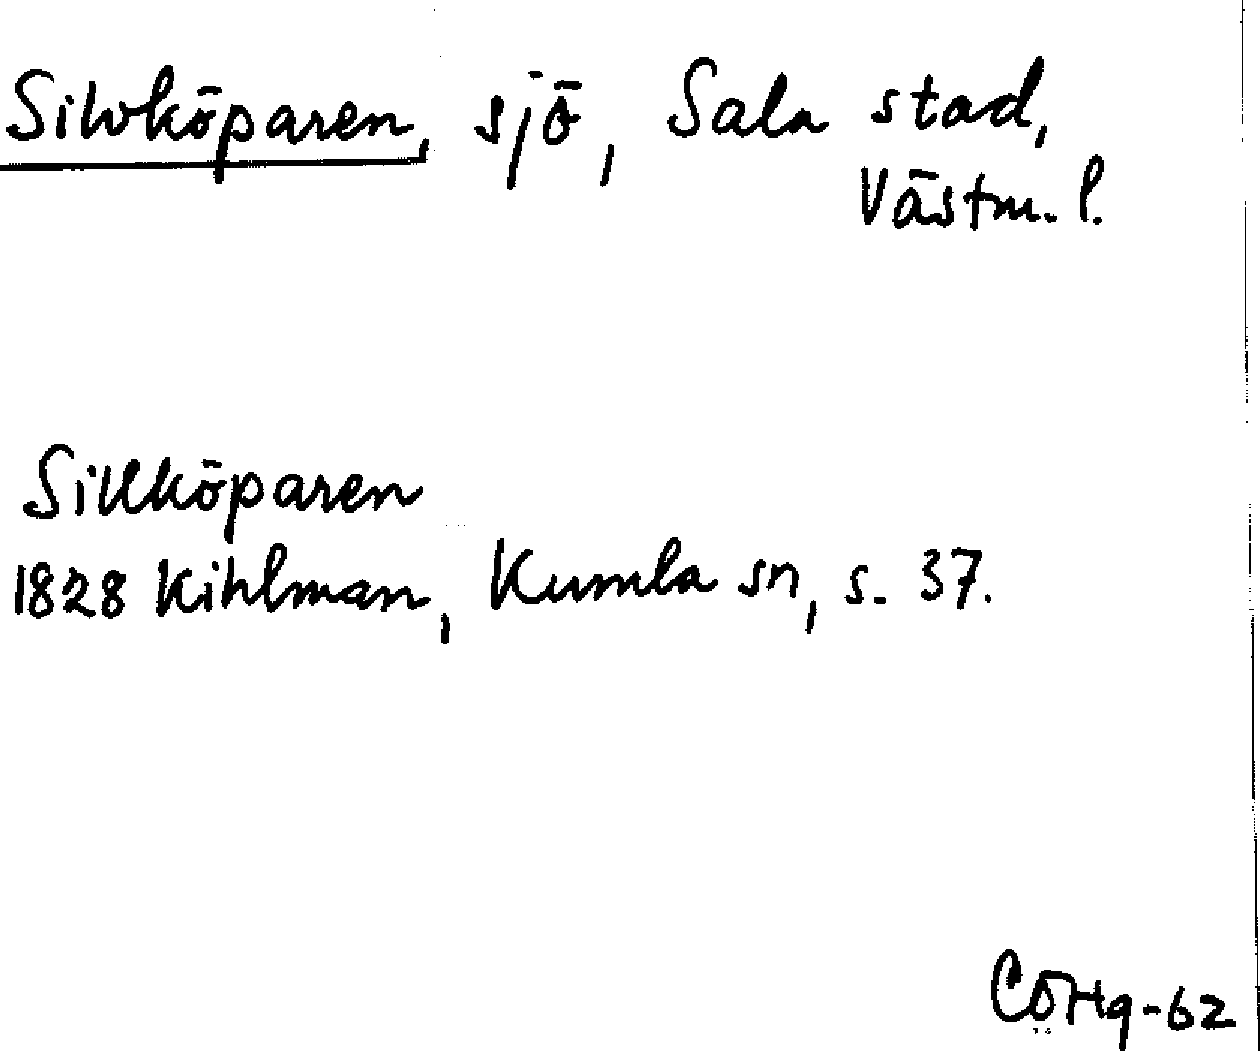 Silvköparen, sjö, Sala stad,
Västm. l.
Sillköparen
1828 Kihlman, Kumla sn, s. 37.
CÖHg-62